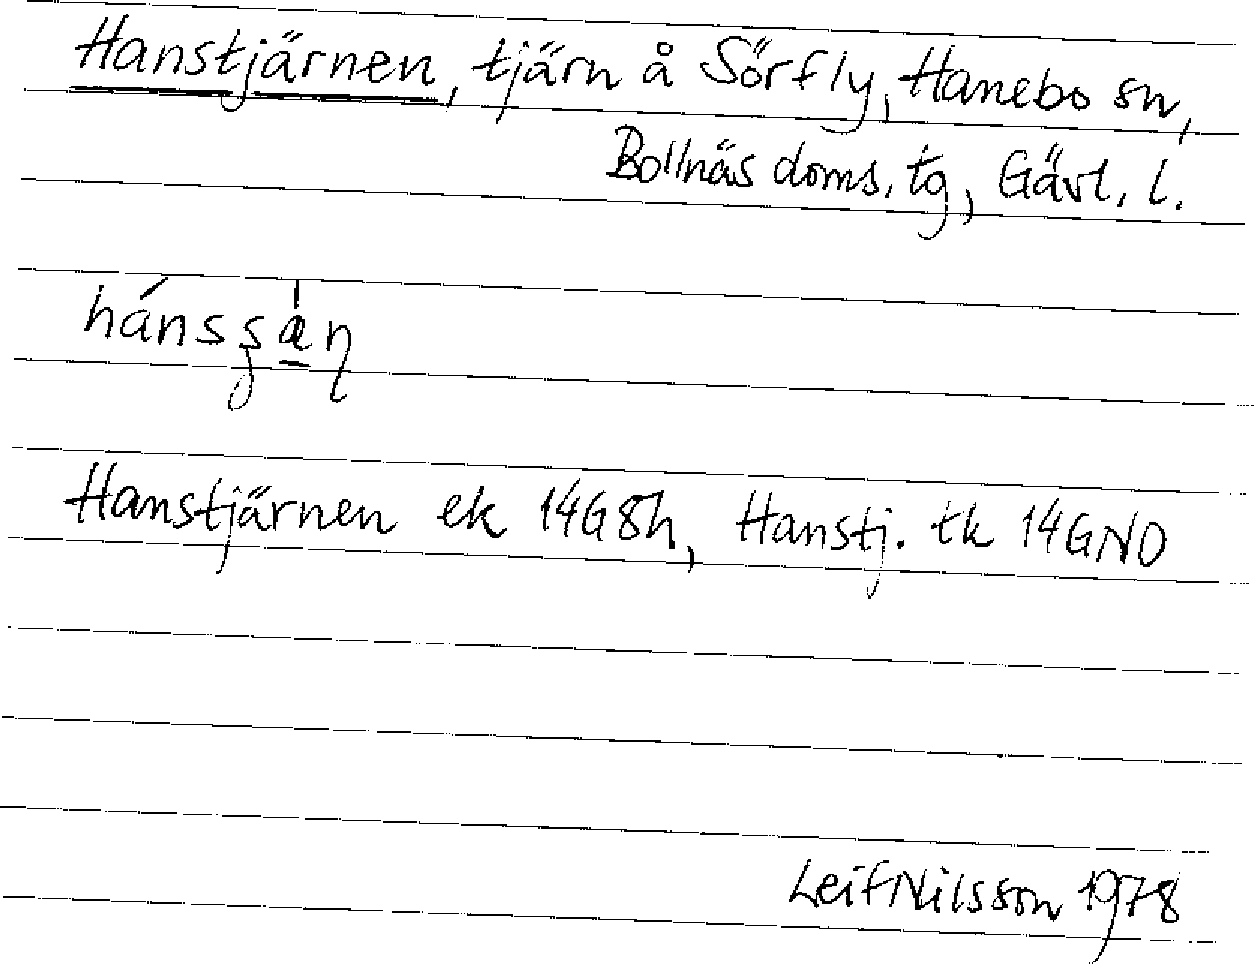 Hanstjärnen, tjärn å Sörfly, Hanebo sn,
Bollnäs doms. tg, Gävl. l.
Hanstjärnen ek 14G8h, Hanstj. tk 14GNO
Leif Nilsson 1978